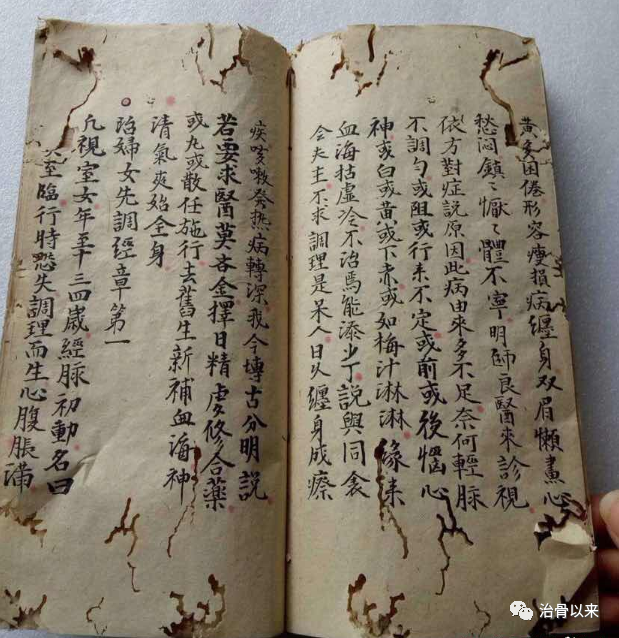 黄多困倦形容瘦損病纏身双眉懒畫心
愁闷鎮〻懨〻體不寧明師良醫來診視
依方對症說原因此病由來多不足奈何輕脉
不調勻或阻或行来不定或前或後惱心
神或白或黄或下赤或如梅汁淋淋缘来
血海枯虚冷不治焉能添少丁說與同衾
会夫主不求調理是呆人日久纏身成瘵
疾咳嗽發热病轉深我今博古分明說
若要求醫莫吝金擇日精虔修合藥
或丸或散任施行去舊生新補血海神
清氣爽始全身
治婦女先調經章第一
凡視室女年至十三四歲經脉初動名曰
至臨行時愆失調理而生心腹脹滿
治骨以来